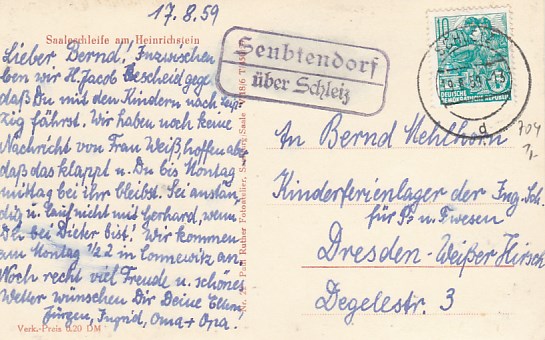 17.8.59
Saaleschleife am Heinrichstein
Lieber Bernd! Inzwischen
ben wir H. Jacob Bescheid gege
daß Du mit den Kindern nach Leip
zig fährst. Wir haben noch keine
Nachricht von Frau Weiß, hoffen ab
daß das klappt u. Du bis Montag
mittag bei ihr bleibst. Sei anstän
dig u. lauf nicht mit Gerhard, wenn
Du bei Dieter bist! Wir kommen
am Montag ½2 in Connewitz an.
Noch recht viel Freude u. schönes
Wetter wünschen Dir Deine Eltern
Jürgen, Ingrid, Oma + Opa.
Verk.-Preis 0,20 DM
Paul Ruther Fotoatelier, Saalburg/Saale
Seubtendorf
über Schleiz
10
15
DEUTSCHE
DEMOKRATISCHE REPUBLIK
59-13
d
704
1,-
An Bernd Mehlhorn
Kinderferienlager der Ing. Sch.
für P- u. Fwesen
Dresden-Weißer Hirsch
Degelestr. 3